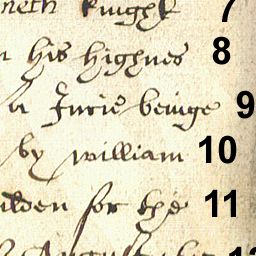 neth knight 7
his highnes 8
a Iurie beinge 9
by william 10
ilden for the 11
August